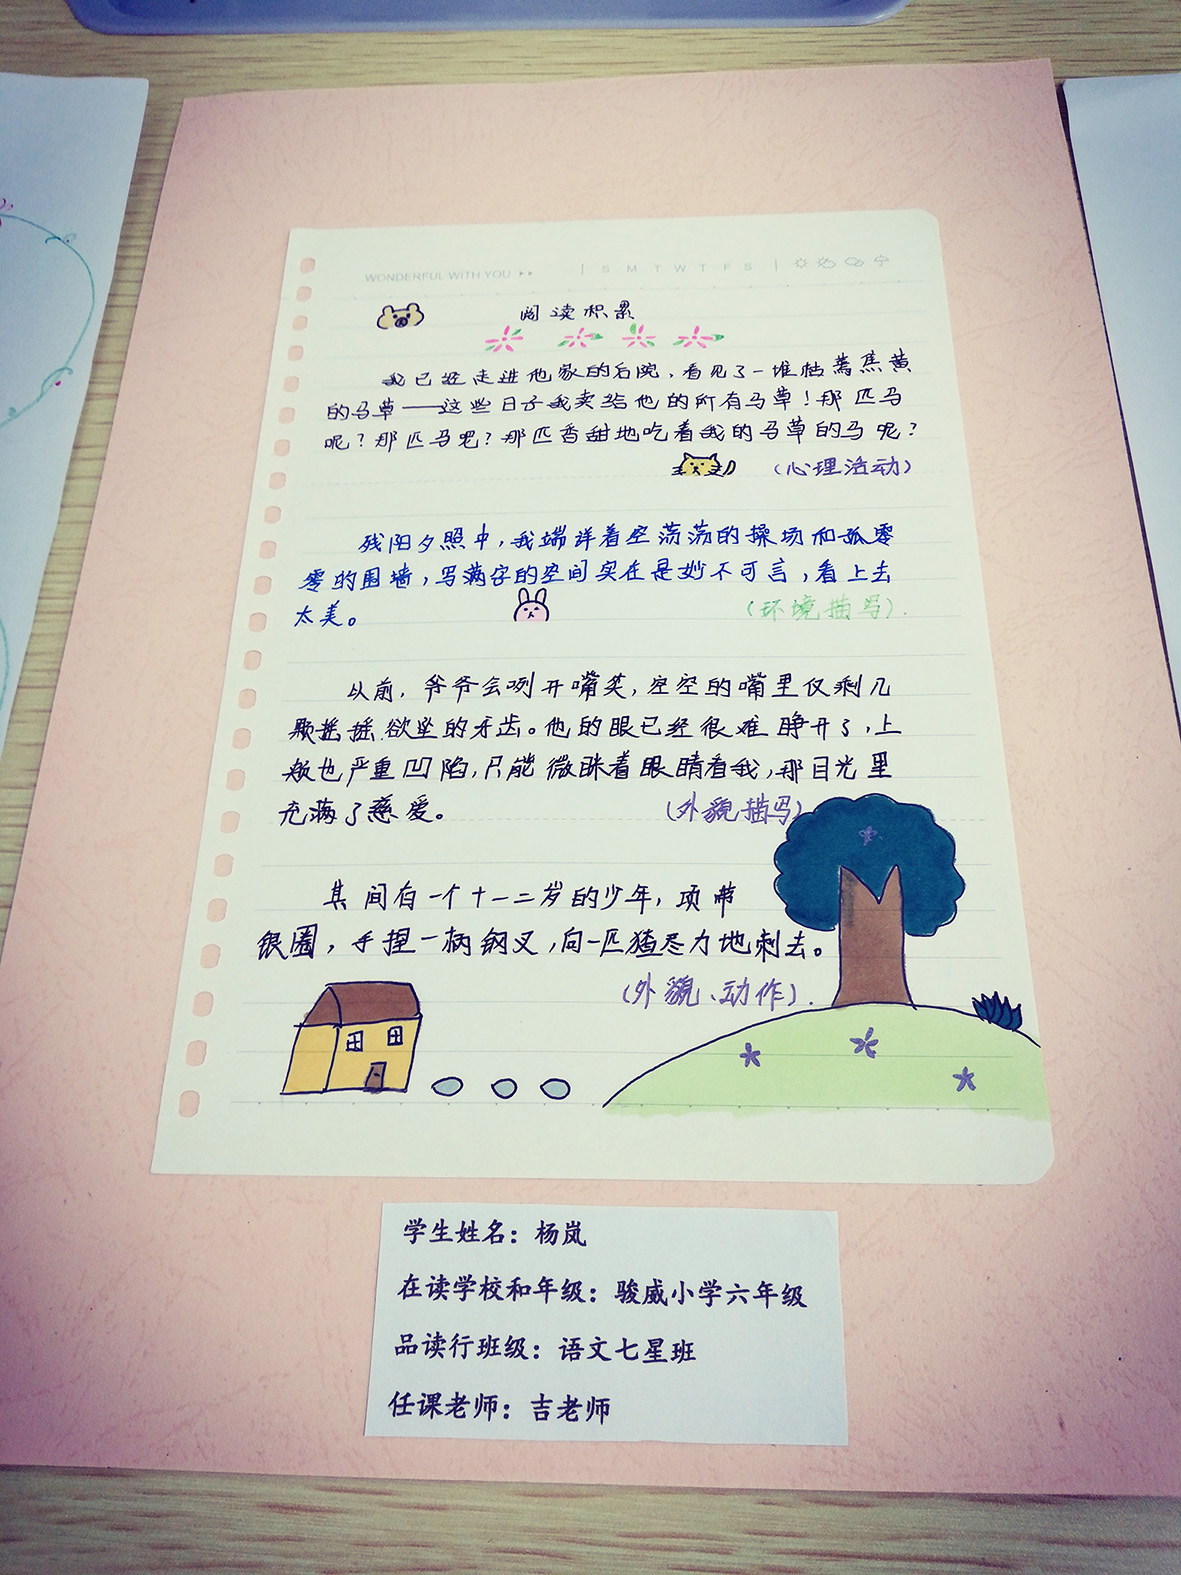 WONDERFUL WITH YOU ▸▸ | S M T W T F S |
阅读积累
我已经走进他家的后院,看见了一堆枯蒿焦黄
的马草——这些日子我卖给他的所有马草!那匹马
呢?那匹马吧?那匹香甜地吃着我的马草的马呢?
(心理活动)
残阳夕照中,我端详着空荡荡的操场和孤零
零的围墙,写满字的空间实在是妙不可言,看上去
太美。
(环境描写).
以前,爷爷会咧开嘴笑,空空的嘴里仅剩几
颗摇摇欲坠的牙齿。他的眼已经很难睁开了,上
也严重凹陷,只能微眯着眼睛看我,那目光里
充满了慈爱。
(外貌描写)
其间有一个十一二岁的少年,项带
银圈,手捏一柄钢叉,向一匹猹尽力地刺去。
(外貌、动作).
学生姓名:杨岚
在读学校和年级:骏威小学六年级
品读行班级:语文七星班
任课老师:吉老师